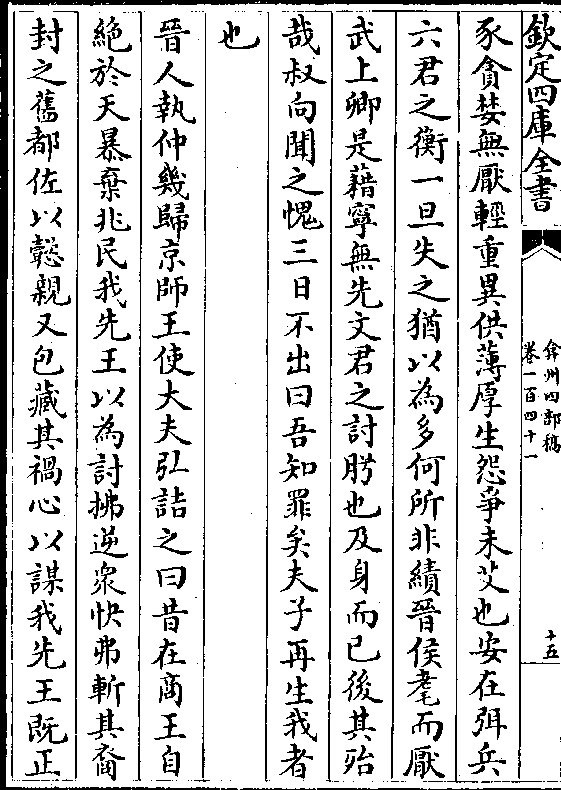 欽定四庫全書
弇州四部稿
卷一百四十一
十五
豕貪婪無厭輕重異供薄厚生怨爭未艾也安在弭兵
六君之衡一旦失之猶以為多何所非績晉侯耄而厭
武上卿是藉寧無先文君之討肹也及身而已後其殆
哉叔向聞之愧三日不出曰吾知罪矣夫子再生我者
也
晉人執仲幾歸京師王使大夫弘詰之曰昔在商王自
絶於天暴棄兆民我先王以為討拂逆衆快弗斬其裔
封之舊都佐以懿親又包藏其禍心以謀我先王既正